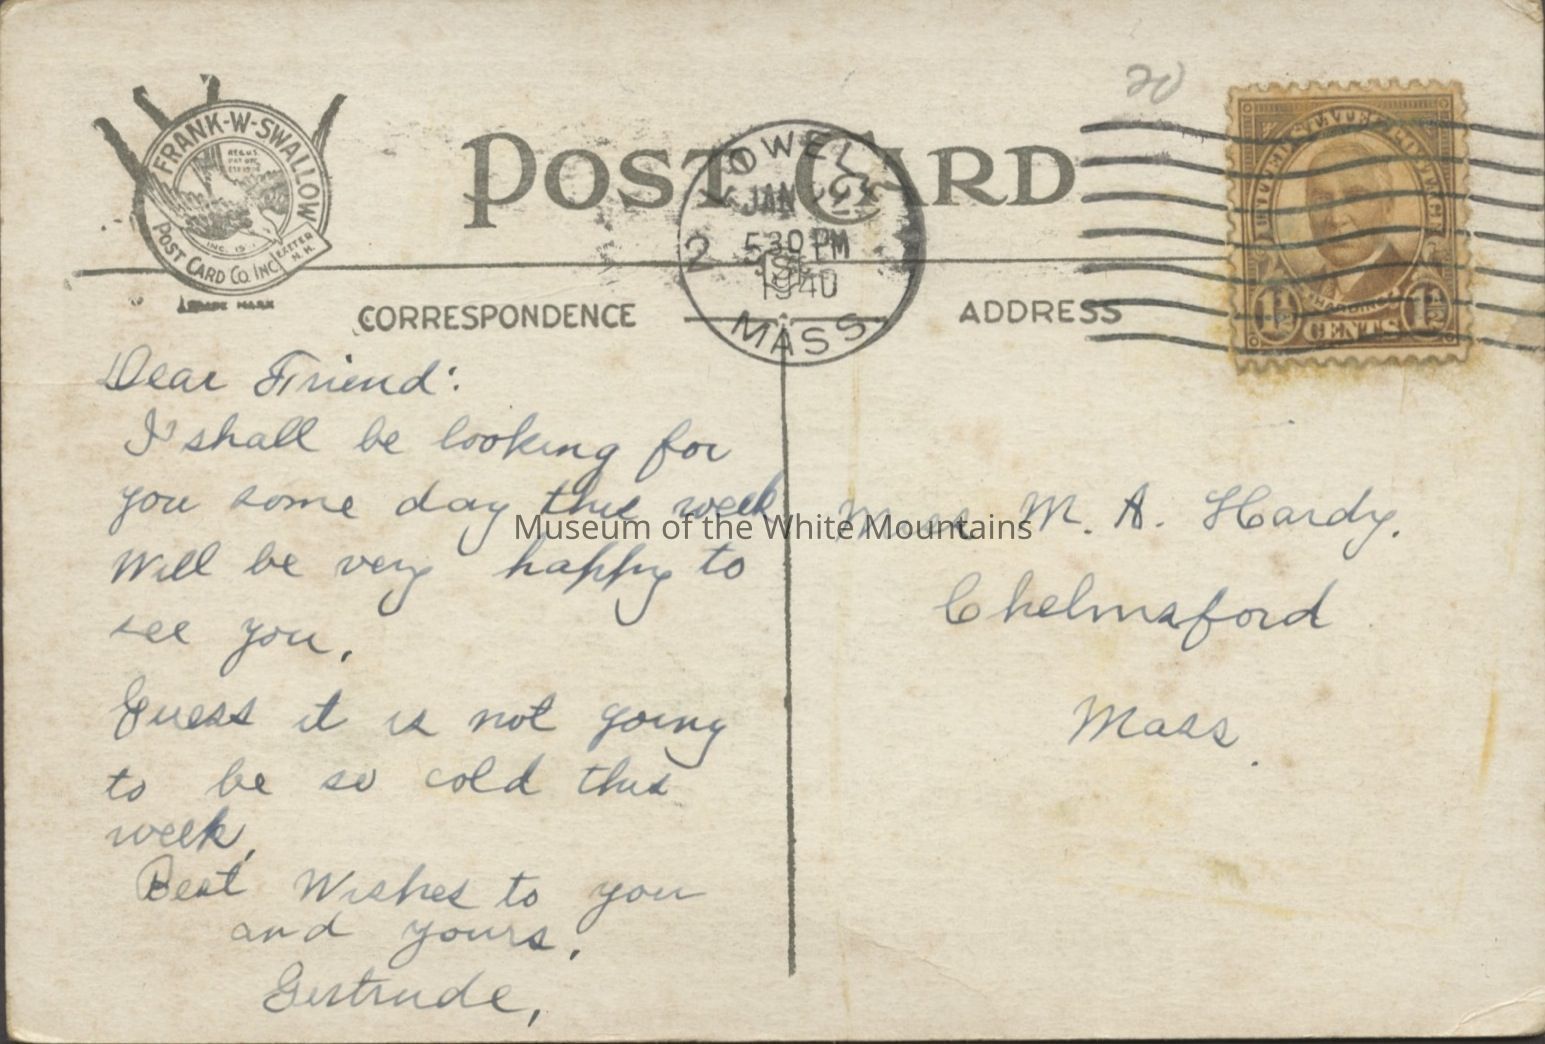 20
FRANK-W-SWALLOW
POST CARD CO. INC.
EXETER
N.H.
TRADE MARK
POST CARD
LOWELL
JAN 22
5 30 PM
1940
MASS
2
CORRESPONDENCE
ADDRESS
HARDING
1½ CENTS 1½
Dear Friend:
I shall be looking for
you some day this week
Will be very happy to
see you.
Guess it is not going
to be so cold this
week.
Best Wishes to you
and yours.
Gertrude,
Miss M. A. Hardy.
Chelmsford
Mass.
Museum of the White Mountains